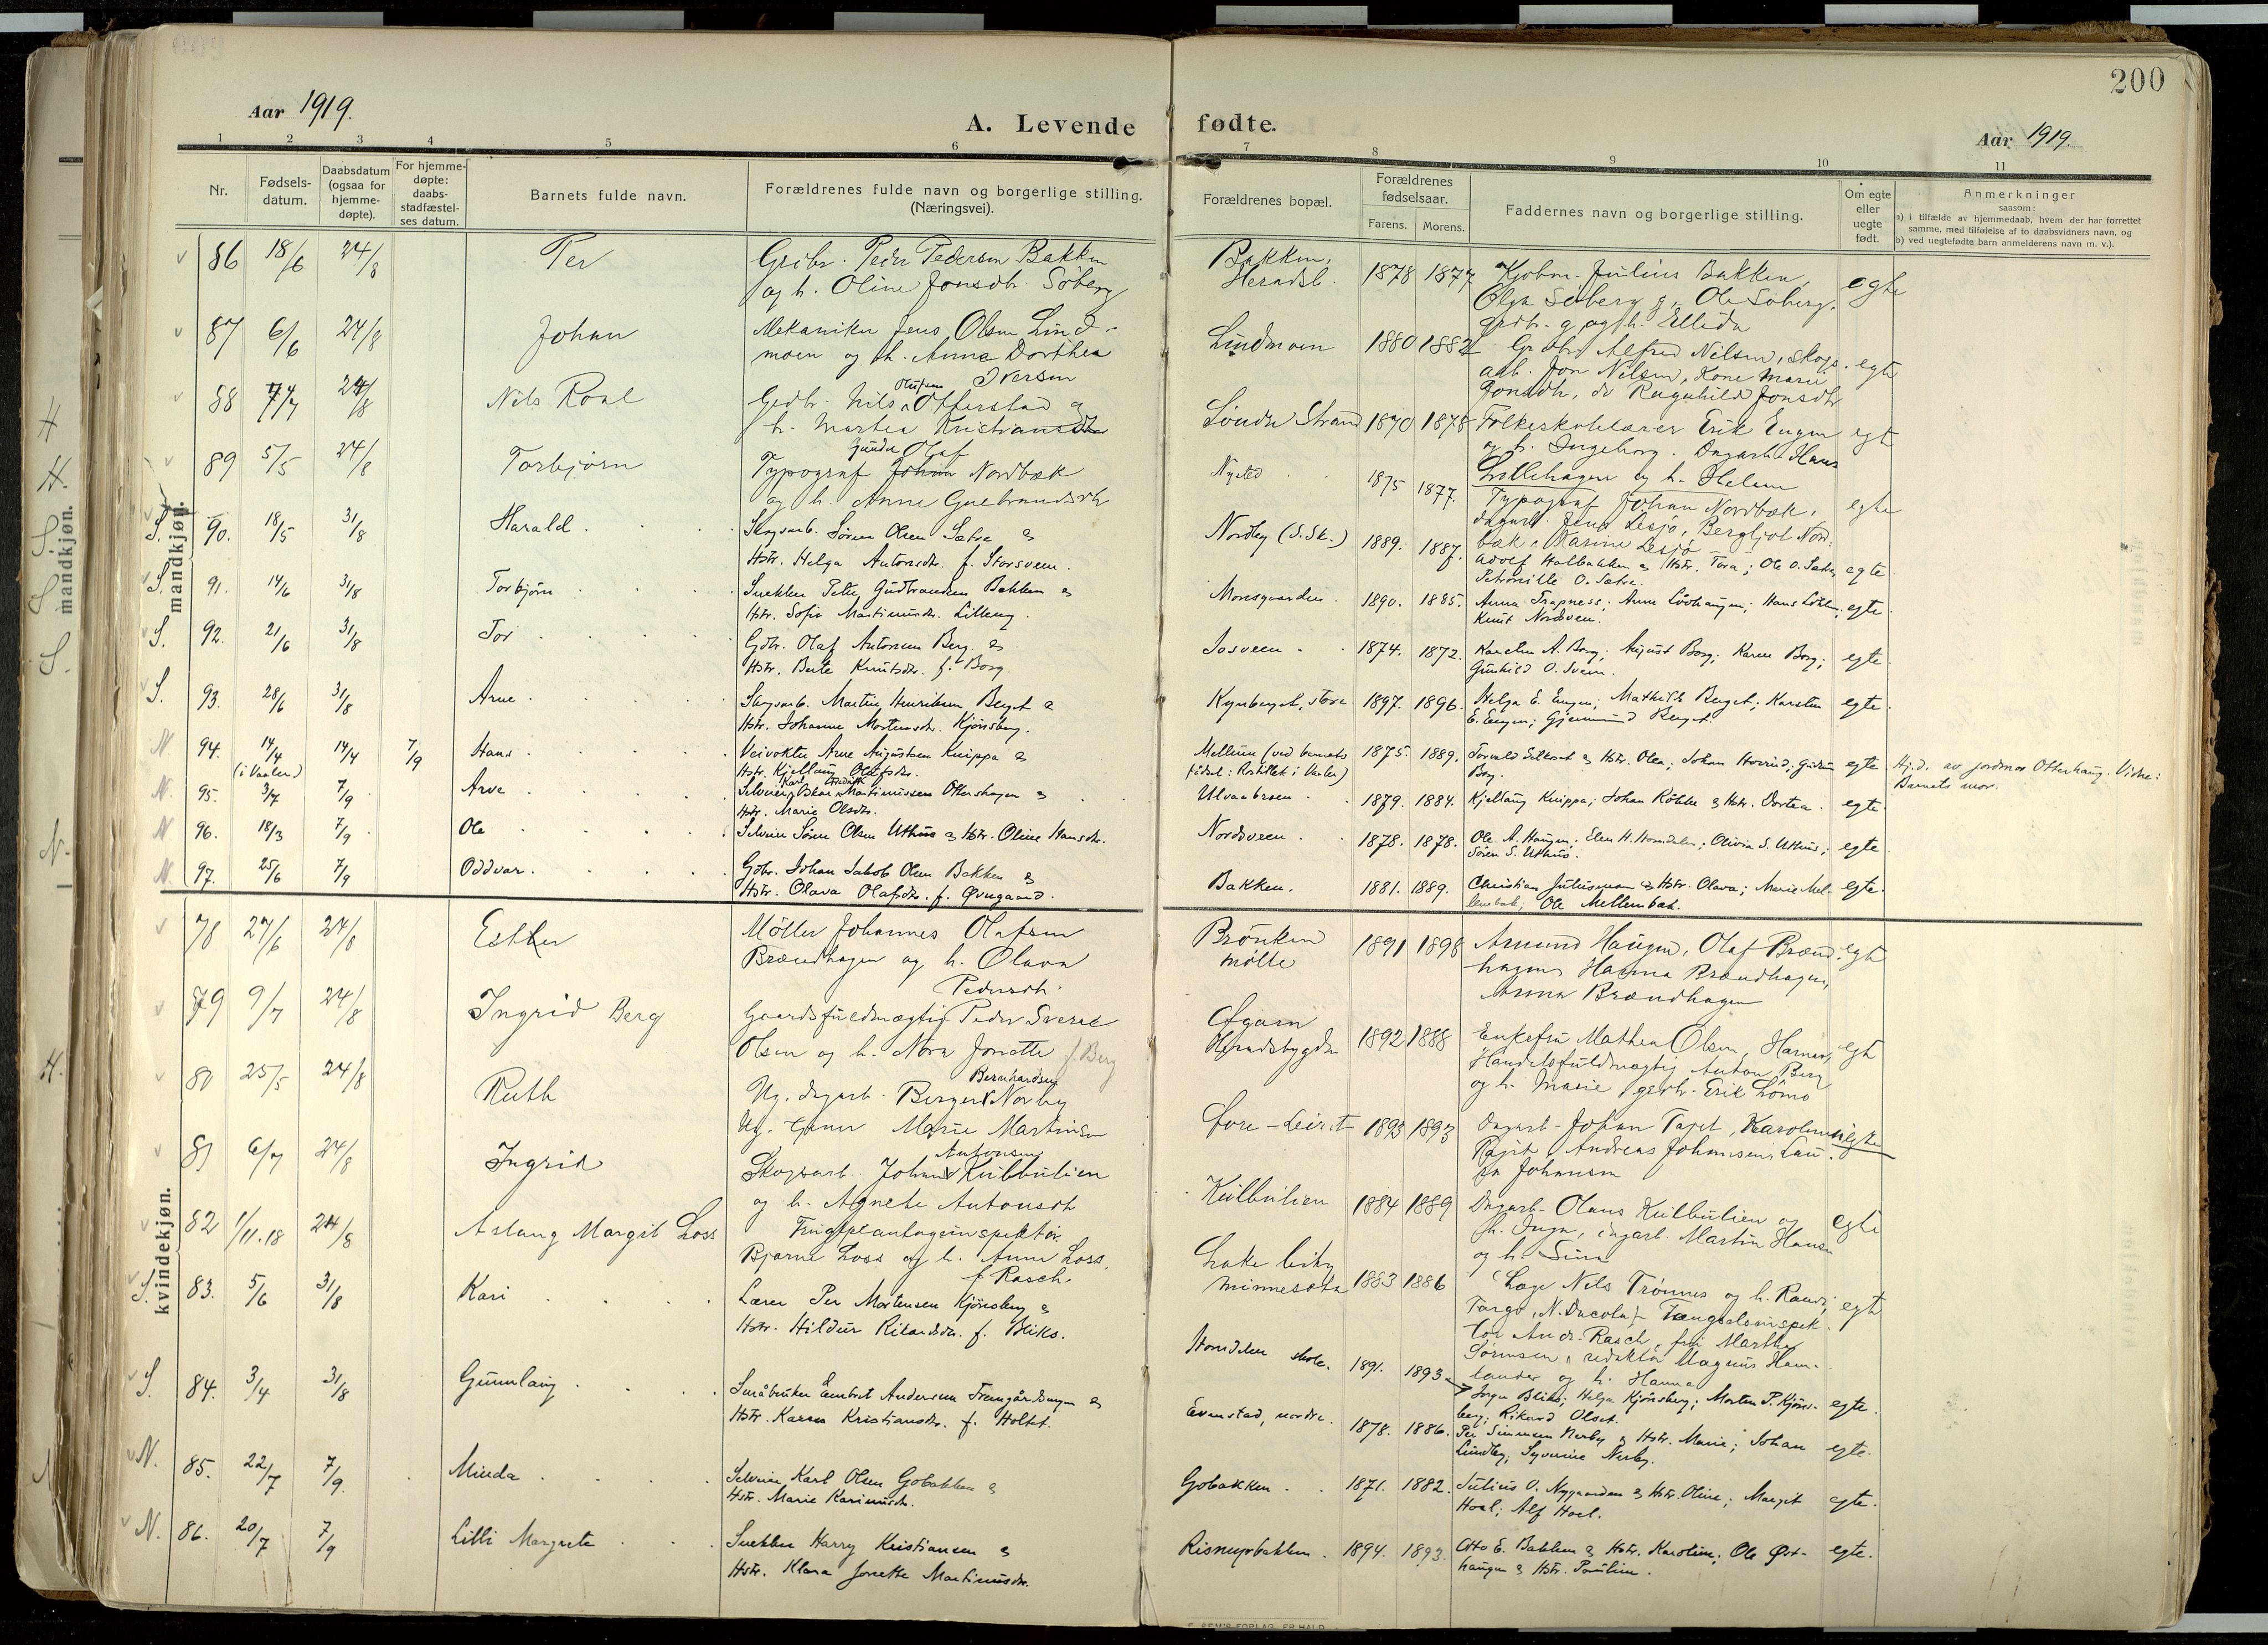 200
Aar 1919.
A. Levende fødte.
Aar 1919.
1 2 3 4 5 6 7 8 9 10 11
Nr.
Fødsels-
datum.
Daabsdatum
(ogsaa for
hjemme-
døpte).
For hjemme-
døpte:
daabs-
stadfæstel-
ses datum.
Barnets fulde navn.
Forældrenes fulde navn og borgerlige stilling.
(Næringsvei).
Forældrenes bopæl.
Forældrenes
fødselsaar.
Farens. Morens.
Faddernes navn og borgerlige stilling.
Om egte
eller
uegte
født.
Anmerkninger
saasom:
a) i tilfælde av hjemmedaab, hvem der har forrettet
samme, med tilføielse av to daabsvidners navn, og
b) ved uegtefødte barn anmelderens navn m. v.).
mandkjøn.
86 18/6 24/8 Per
Grdbr. Peder Pedersen Bakken
og h. Oline Jonsdtr. Søberg
Bakken,
Heradsb. 1878 1877
Kjøbm. Julius Bakken,
Olga Søberg g., Ole Søberg,
grdbr. g og h. Ellida
egte
87 6/6 24/8 Johan
Mekaniker Jens Olsen Lind-
moen og h. Anna Dorthea
Iversen
Lindmoen 1880 1882
Grdbr Alfred Nilsen, skogs-
arb. Jon Nilsen, Kone Marie
Jonsdtr, do Ragnhild Jonsdtr
egte
88 7/7 24/8 Nils Roal
Grdbr. Nils Olufsen Otterstad og
h. Martea Kristiansdtr
Søndre Strand 1870 1878
Folkeskolelærer Erik Engen
og h. Ingeborg. Dagarb. Hans
Lillehagen og h. Helene
egte
89 5/5 24/8 Torbjørn
Gunder Olaf
Typograf Johan Nordbæk
og h. Anne Gulbrandsdtr
Nysted 1875 1877.
Typograf Johan Nordbæk,
dagarb. Jens Lesjø, Bergljot Nord-
bæk, Marine Lesjø
egte
S. 90. 18/5 31/8 Harald
Skogsarb. Søren Olsen Sætre &
Hstr. Helga Antonsdtr. f. Storsveen.
Nordby (S. Sk.) 1889. 1887.
Adolf Halbakken & Hstr. Tora; Ole O. Sætre,
Petronille O. Sætre.
egte
S. 91. 14/6 31/8 Torbjørn
Snekker Peter Gudbrandsen Bakken &
Hstr. Sofie Martinusdtr. Lilleeng.
Monsgaarden. 1890. 1885.
Anna Trapness; Anne Lövhaugen; Hans Löhlen;
Knut Nordsveen.
egte
S. 92. 21/6 31/8 Tor
Gdbr. Olaf Antonsen Berg &
Hstr. Berte Knutsdtr. f. Borg.
Josveen 1874. 1872.
Karsten A. Berg; August Borg; Karen Borg;
Gunhild O. Sveen.
egte
S. 93. 28/6 31/8 Arne
Skogsarb. Martin Henriksen Berget &
Hstr. Johanne Mortensdtr. Kjönsberg.
Kynberget, store 1897. 1896.
Helga E. Engen; Mathilde Berget; Karsten
E. Engen; Gjermund Berget.
egte
N. 94. 14/4 14/4 7/9 Hans
(i Vaaler.)
Veivokter Arne Augustsen Knippa &
Hstr. Kjellaug Olufsdtr.
Mellum (ved barnets
fødsel: Rostillet i Vaaler) 1875. 1889.
Torvald Silkeset & Hstr. Olea; Johan Hovrud; Gudrun
Borg.
egte
Hj.d. av jordmor Otterhaug. Vidne:
Barnets mor.
N. 95. 3/7 7/9 Arve
Selveier Karl Oskar Fredrik Martinussen Ottershagen &
Hstr. Marie Olsdtr.
Ulvaabraen 1879. 1884.
Kjellaug Knippa; Johan Röhke & Hstr. Dortea.
egte
N. 96. 18/3 7/9 Ole
Selveier Sören Olsen Uthus & Hstr. Oline Hansdtr.
Nordsveen. 1878. 1878.
Ole A. Haugen; Elen H. Horndalen; Olivia S. Uthus;
Sören S. Uthus.
egte
N. 97. 25/6 7/9 Oddvar.
Gdbr. Johan Jakob Olsen Bakken &
Hstr. Olava Olafsdtr. f. Øvergaard.
Bakken. 1881. 1889.
Christian Juliussen & Hstr. Olava; Marie Mel-
lembæk; Ole Mellembæk.
egte.
kvindekjøn.
78 27/6 24/8 Esther
Møller Johannes Olafsen
Brændhagen og h. Olava
Pedersdtr.
Brønken
mølle 1891 1898
Amund Haugen, Olaf Brænd-
hagen, Hanna Brændhagen,
Anna Brændhagen
egte
79 9/7 24/8 Ingrid Berg
Gaardsfuldmægtig Peder Sverre
Olsen og h. Nora Jonette f. Berg
Heradsbygden 1892 1888
Enkefru Mathea Olsen, Hamar,
Handelsfuldmægtig Anton Berg
og h. Marie, grdbr. Erik Lömo
egte
80 25/5 24/8 Ruth
Bernhardsen
Ug. dagarb. Birger Norby
Ug. tjener Marie Martinsen
1893 1893
Dagarb. Johan Tajet, Karoline
Tajet, Andreas Johansen, Lau-
ra Johansen
uegte
81 6/7 24/8 Ingrid
Antonsen
Skogsarb. Johan Kulbulien
og h. Agnete Antonsdtr
Kulbulien 1884 1889
Dagarb. Olaus Kulbulien og
h. Inga, dagarb. Martin Hansen
og h. Sina
egte
82 1/11.18 24/8 Aslaug Margit Loss
Frugtplantageinspektør
Bjarne Loss og h. Anna Loss,
f. Rasch.
Lake
Minnesota 1883 1886
Læge Nils Trönnes og h. Randi,
Fargo, N. Dacota, Fængselsinspek-
tør Andr. Rasch, fru Martha
Sörensen, redaktør Magnus Ham-
lander og h. Hanna
egte
S. 83. 5/6 31/8 Kari
Lærer Per Mortensen Kjönsberg &
Hstr. Hildur Rikardsdtr. f. Bliks.
Horndalen skole. 1891. 1893.
Jörgen Bliks; Helga Kjönsberg; Morten P. Kjöns-
berg; Rikard Olset.
egte.
S. 84. 3/4 31/8 Gunnlaug
Småbruker Embret Andersen Framgårdsengen &
Hstr. Karen Kristiansdtr. f. Holtet.
Evenstad, nordre. 1878. 1886.
Per Simensen Nerby & Hstr. Marie; Johan
Lundby, Syverine Nerby.
egte.
N. 85. 22/7 7/9. Minda
Selveier Karl Olsen Gobakken &
Hstr. Marie Karinusdtr.
Gobakken 1871. 1882.
Julius O. Nygaarden & Hstr. Oline; Margit
Hoel; Alf Hoel.
egte.
N. 86. 20/7 7/9 Lilli Margrete
Snekker Harry Kristiansen &
Hstr. Klara Jonette Martinusdtr.
Rismyrbakken. 1894. 1893.
Otto E. Bakken & Hstr. Karoline; Ole Øst-
haugen & Hstr. Pauline.
egte.